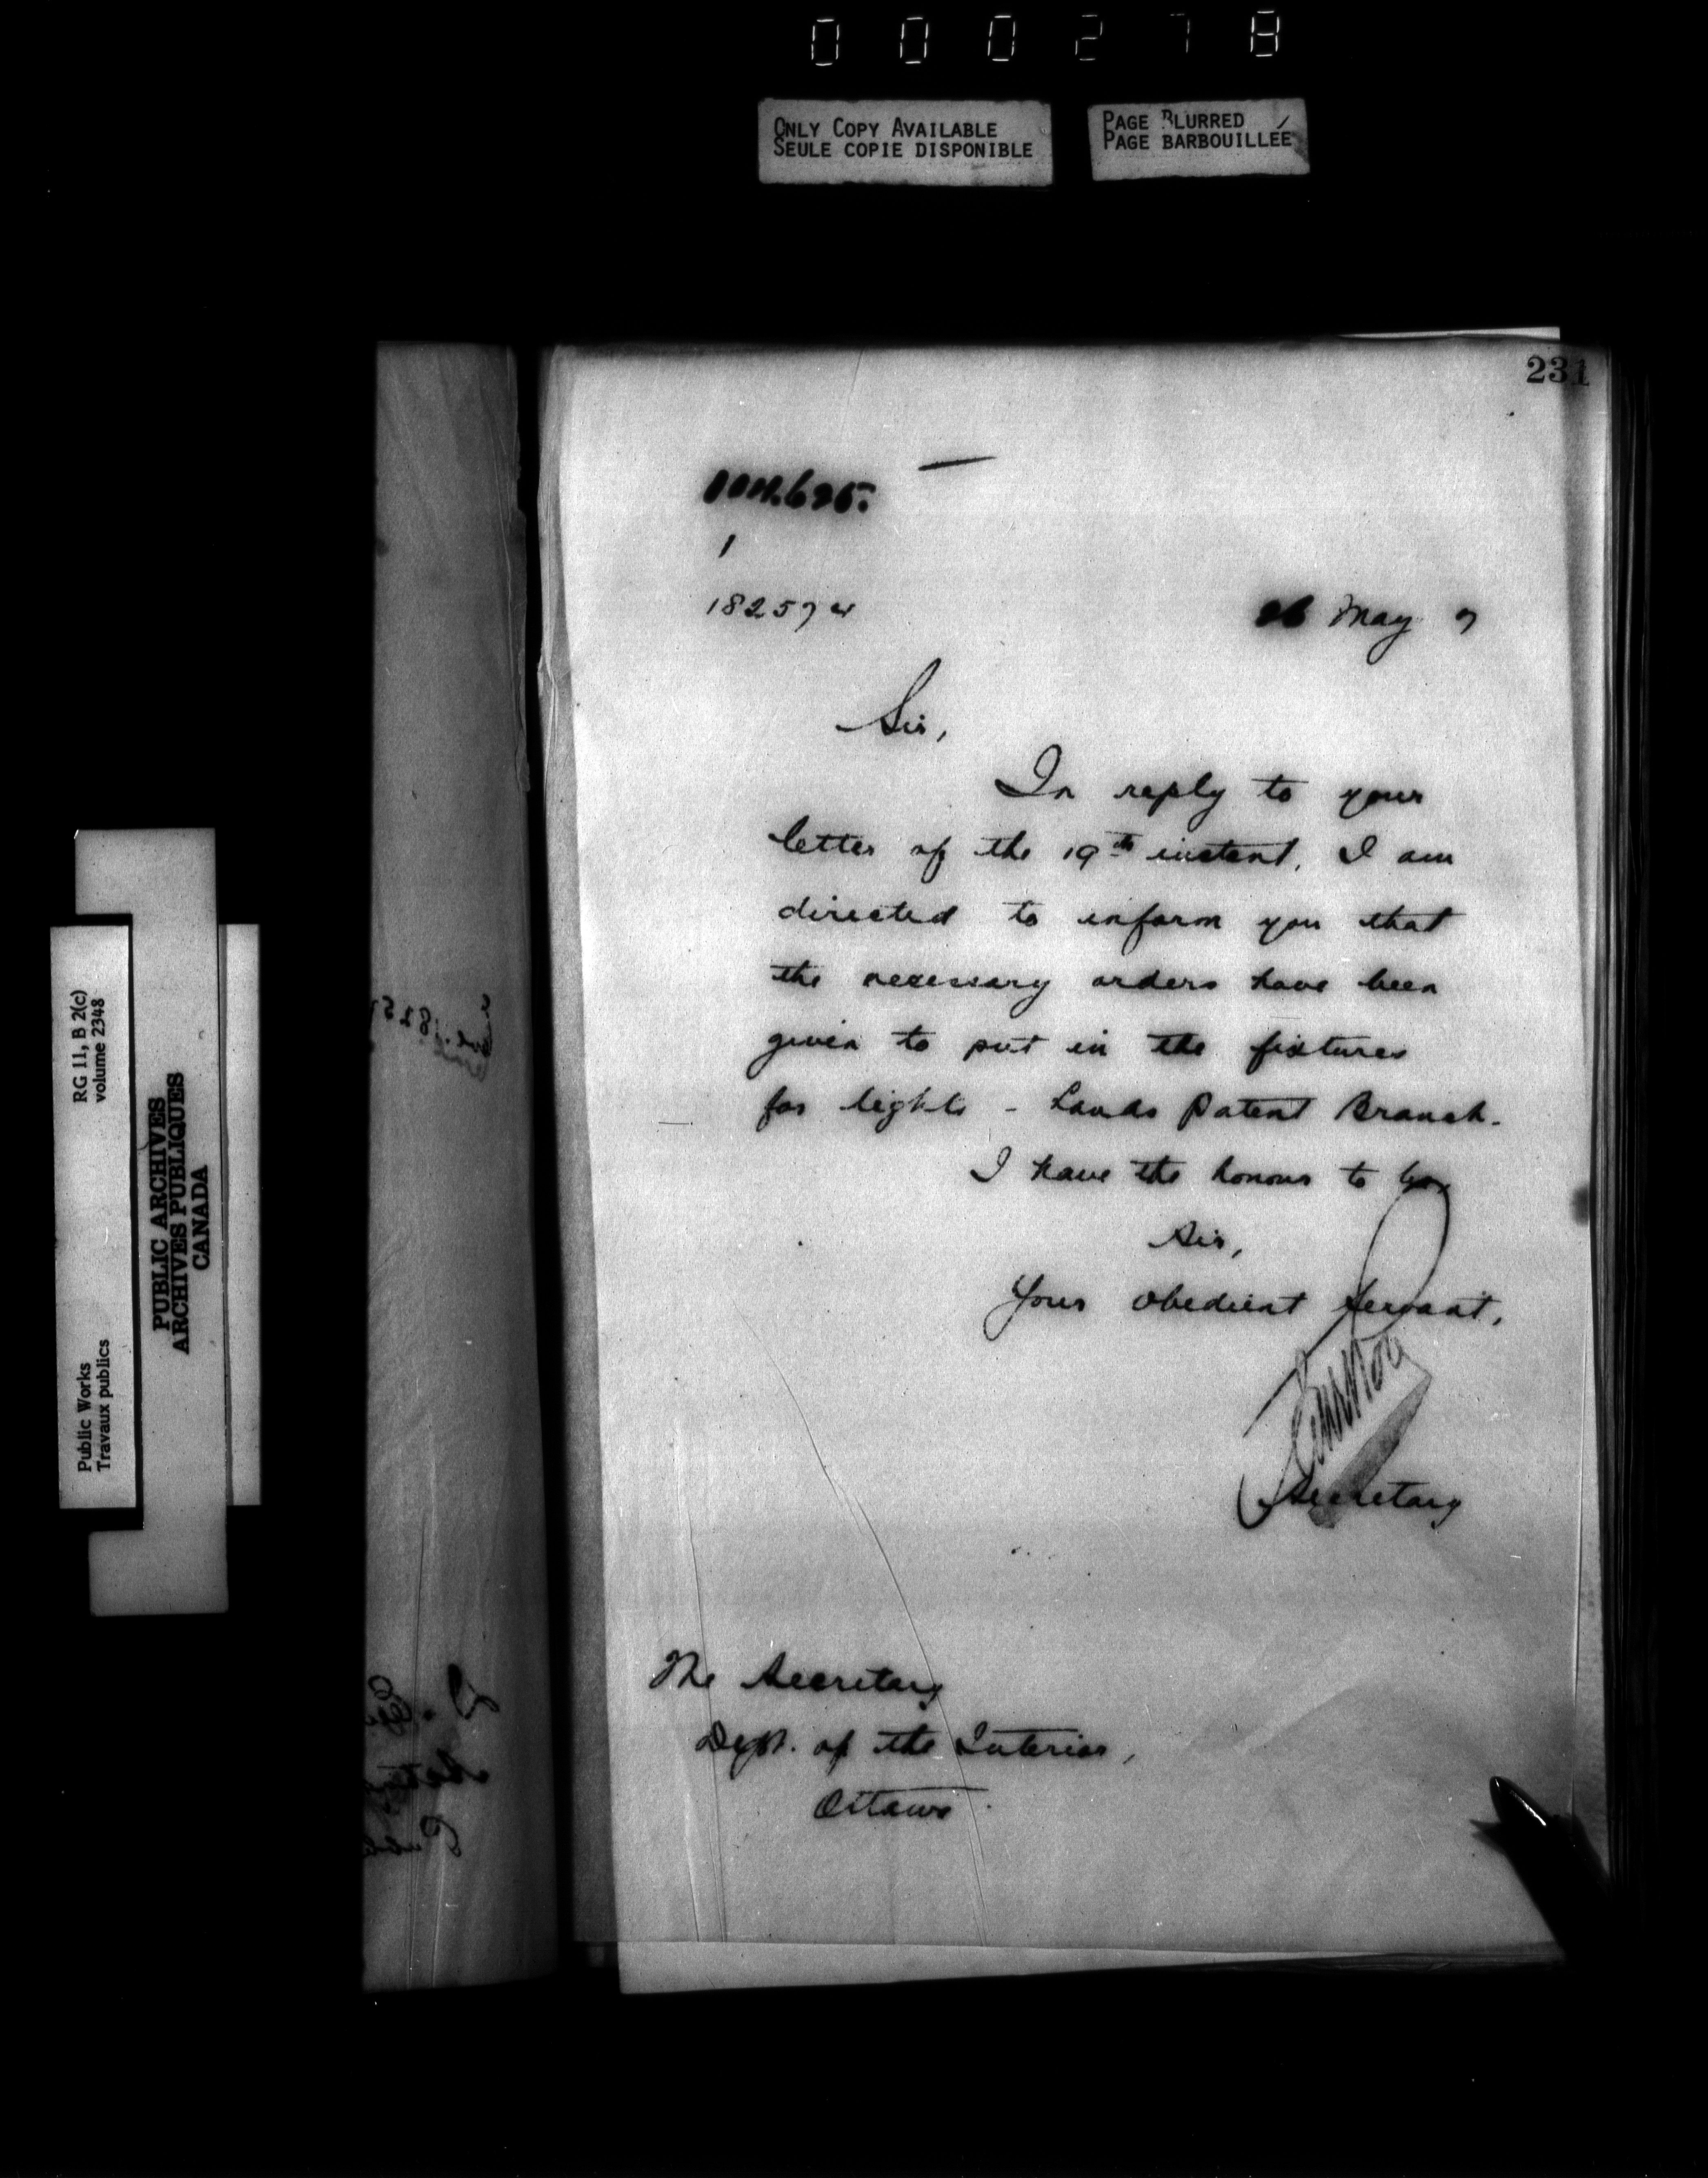 000278
ONLY COPY AVAILABLE
SEULE COPIE DISPONIBLE
PAGE BLURRED
PAGE BARBOUILLÉE
231
1
182574
26 May 7
Sir,
In reply to your
letter of the 19th instant, I am
directed to inform you that
the necessary orders have been
given to put in the fixtures
for lights - Lands Patent Branch.
I have the honour to be,
Sir,
Your obedient servant,
Secretary
The Secretary
Dept. of the Interior,
Ottawa.
RG 11, B 2(c)
volume 2348
Public Works
Travaux publics
PUBLIC ARCHIVES
ARCHIVES PUBLIQUES
CANADA